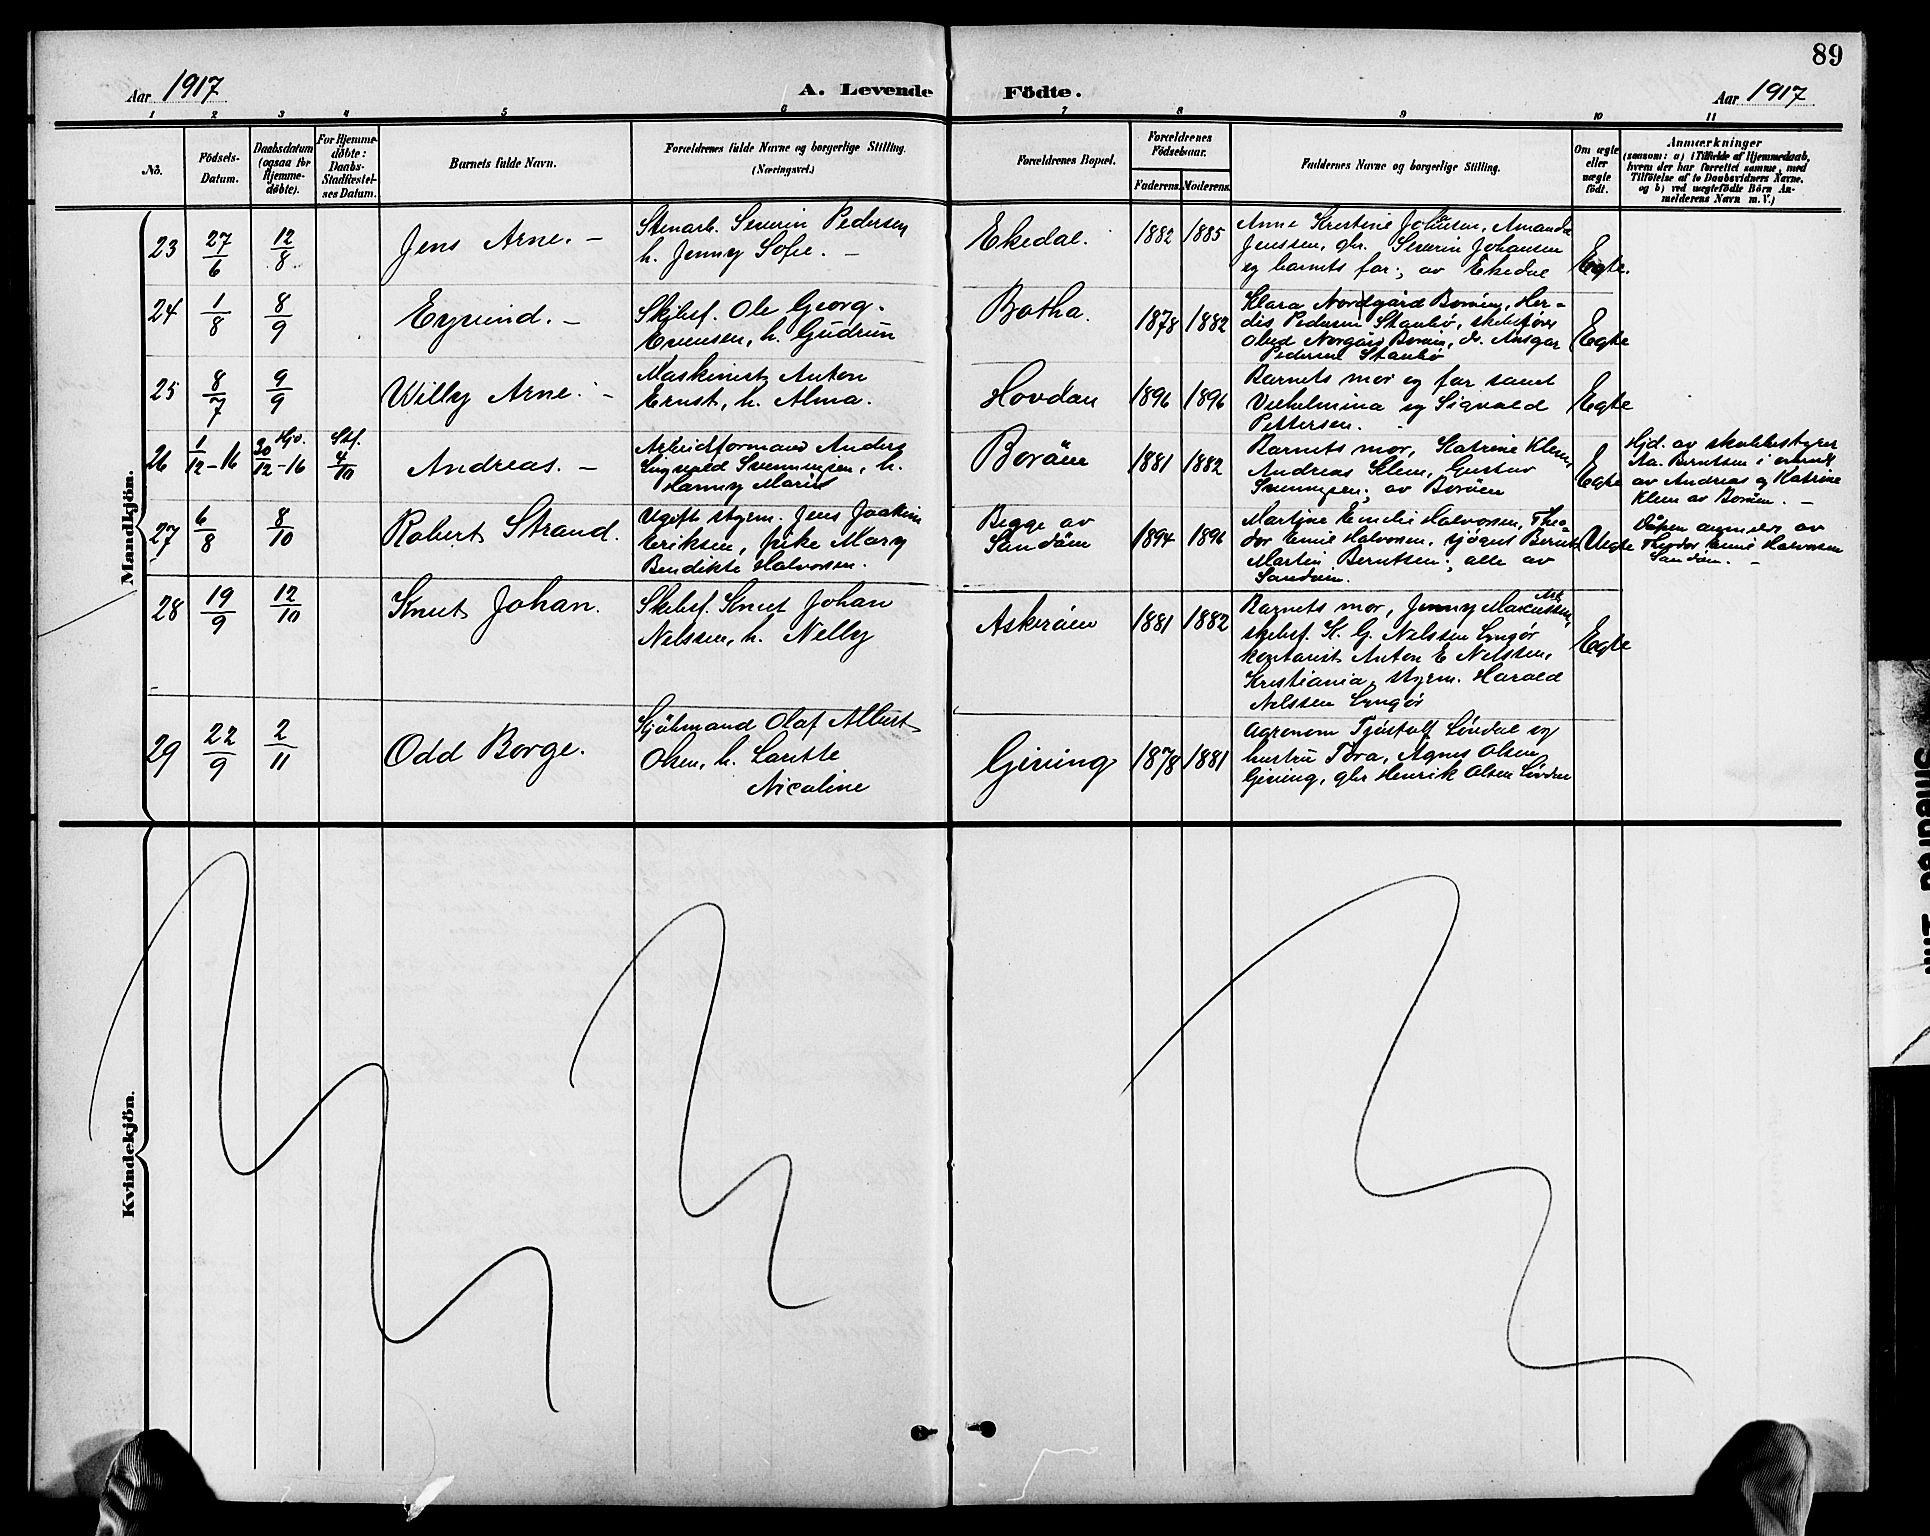 89
Aar 1917
A. Levende Födte.
Aar 1917
1 2 3 4 5 6 7 8 9 10 11
No.
Födsels-
Datum.
Daabsdatum
(ogsaa for
Hjemme-
døbte).
For Hjemme-
døbte:
Daabs-
Stadfæstel-
ses Datum.
Barnets fulde Navn.
Forældrenes fulde Navne og borgerlige Stilling.
(Næringsvei.)
Forældrenes Bopæl.
Forældrenes
Födselsaar.
Faderens. Moderens.
Faddernes Navne og borgerlige Stilling.
Om ægte
eller
uægte
født.
Anmærkninger
(saasom: a) i Tilfælde af Hjemmedaab,
hvem der har forrettet samme, med
Tilföielse af to Daabsvidners Navne,
og b) ved uægtefödte Börn An-
melderens Navn m. V.)
Mandkjön.
23
27/6
12/8
Jens Arne. –
Stenarb. Severin Pedersen
h. Jenny Sofie. –
Ekedal.
1882 1885
Anne Kristine Johansen, Amanda
Jenssen, gbr. Severin Johansen
og barnets far; av Ekedal
Egte.
24
1/8
8/9
Eyvind. –
Skjbsf. Ole Georg
Evensen, h. Gudrun
Botha.
1878 1882
Klara Nordgård Borøen, Her-
dis Pedersen Staubø, skibsfører
Olud Norgård Borøen, do. Ansgar
Pedersen Staubø
Egte
25
8/7
9/9
Willy Arne. –
Maskinist Anton
Ernst, h. Alma.
Hovdan
1896 1896
Barnets mor og far samt
Vilhelmina og Sigvald
Pettersen.
Egte
26
1/12 – 16
30/12 – 16 Hjd.
Stf. 4/10
Andreas. –
Arbeidsformand Anders
Ingvald Svenningsen, h.
Hanny Marie
Borøen
1881 1882
Barnets mor, Katrine Klem,
Andreas Klem, Gustav
Svenningsen; av Borøen
Egte
Hjd. av skolebestyrer
Aa. Berntsen i overvær
av Andreas og Katrine
Klem av Borøen. –
27
6/8
8/10
Robert Strand.
Ugift styrm. Jens Joakim
Eriksen, pike Mary
Bendikte Halvorsen.
Begge av
Sandøen
1894 1896
Martine Emilie Halvorsen, Theo-
dor Emil Halvorsen, sjøgut Bernt
Martin Berntsen; alle av
Sandøen.
Uegte
Dåpen anmeldt av
Theodor Emil Halvorsen
Sandøen. –
28
19/9
12/10
Knut Johan.
Skibsf. Knut Johan
Nilssen, h. Nelly
Askerøen
1881 1882
Barnets mor, Jenny Marcussen Ask.
skibsf. K. G. Nilssen Lyngør
kontorist Anton E Nilssen,
Kristiania, styrm. Harald
Nilssen Lyngør
Egte
29
22/9
2/11
Odd Borge.
Sjøhmand Olaf Albert
Olsen, h. Laritte
Nicoline
Gjeving
1878 1881
Agronom Tjøstolf Løvdal og
hustru Tora, Agnes Olsen
Gjeving, gbr Henrik Olsen Løvdal
Kvindekjön.